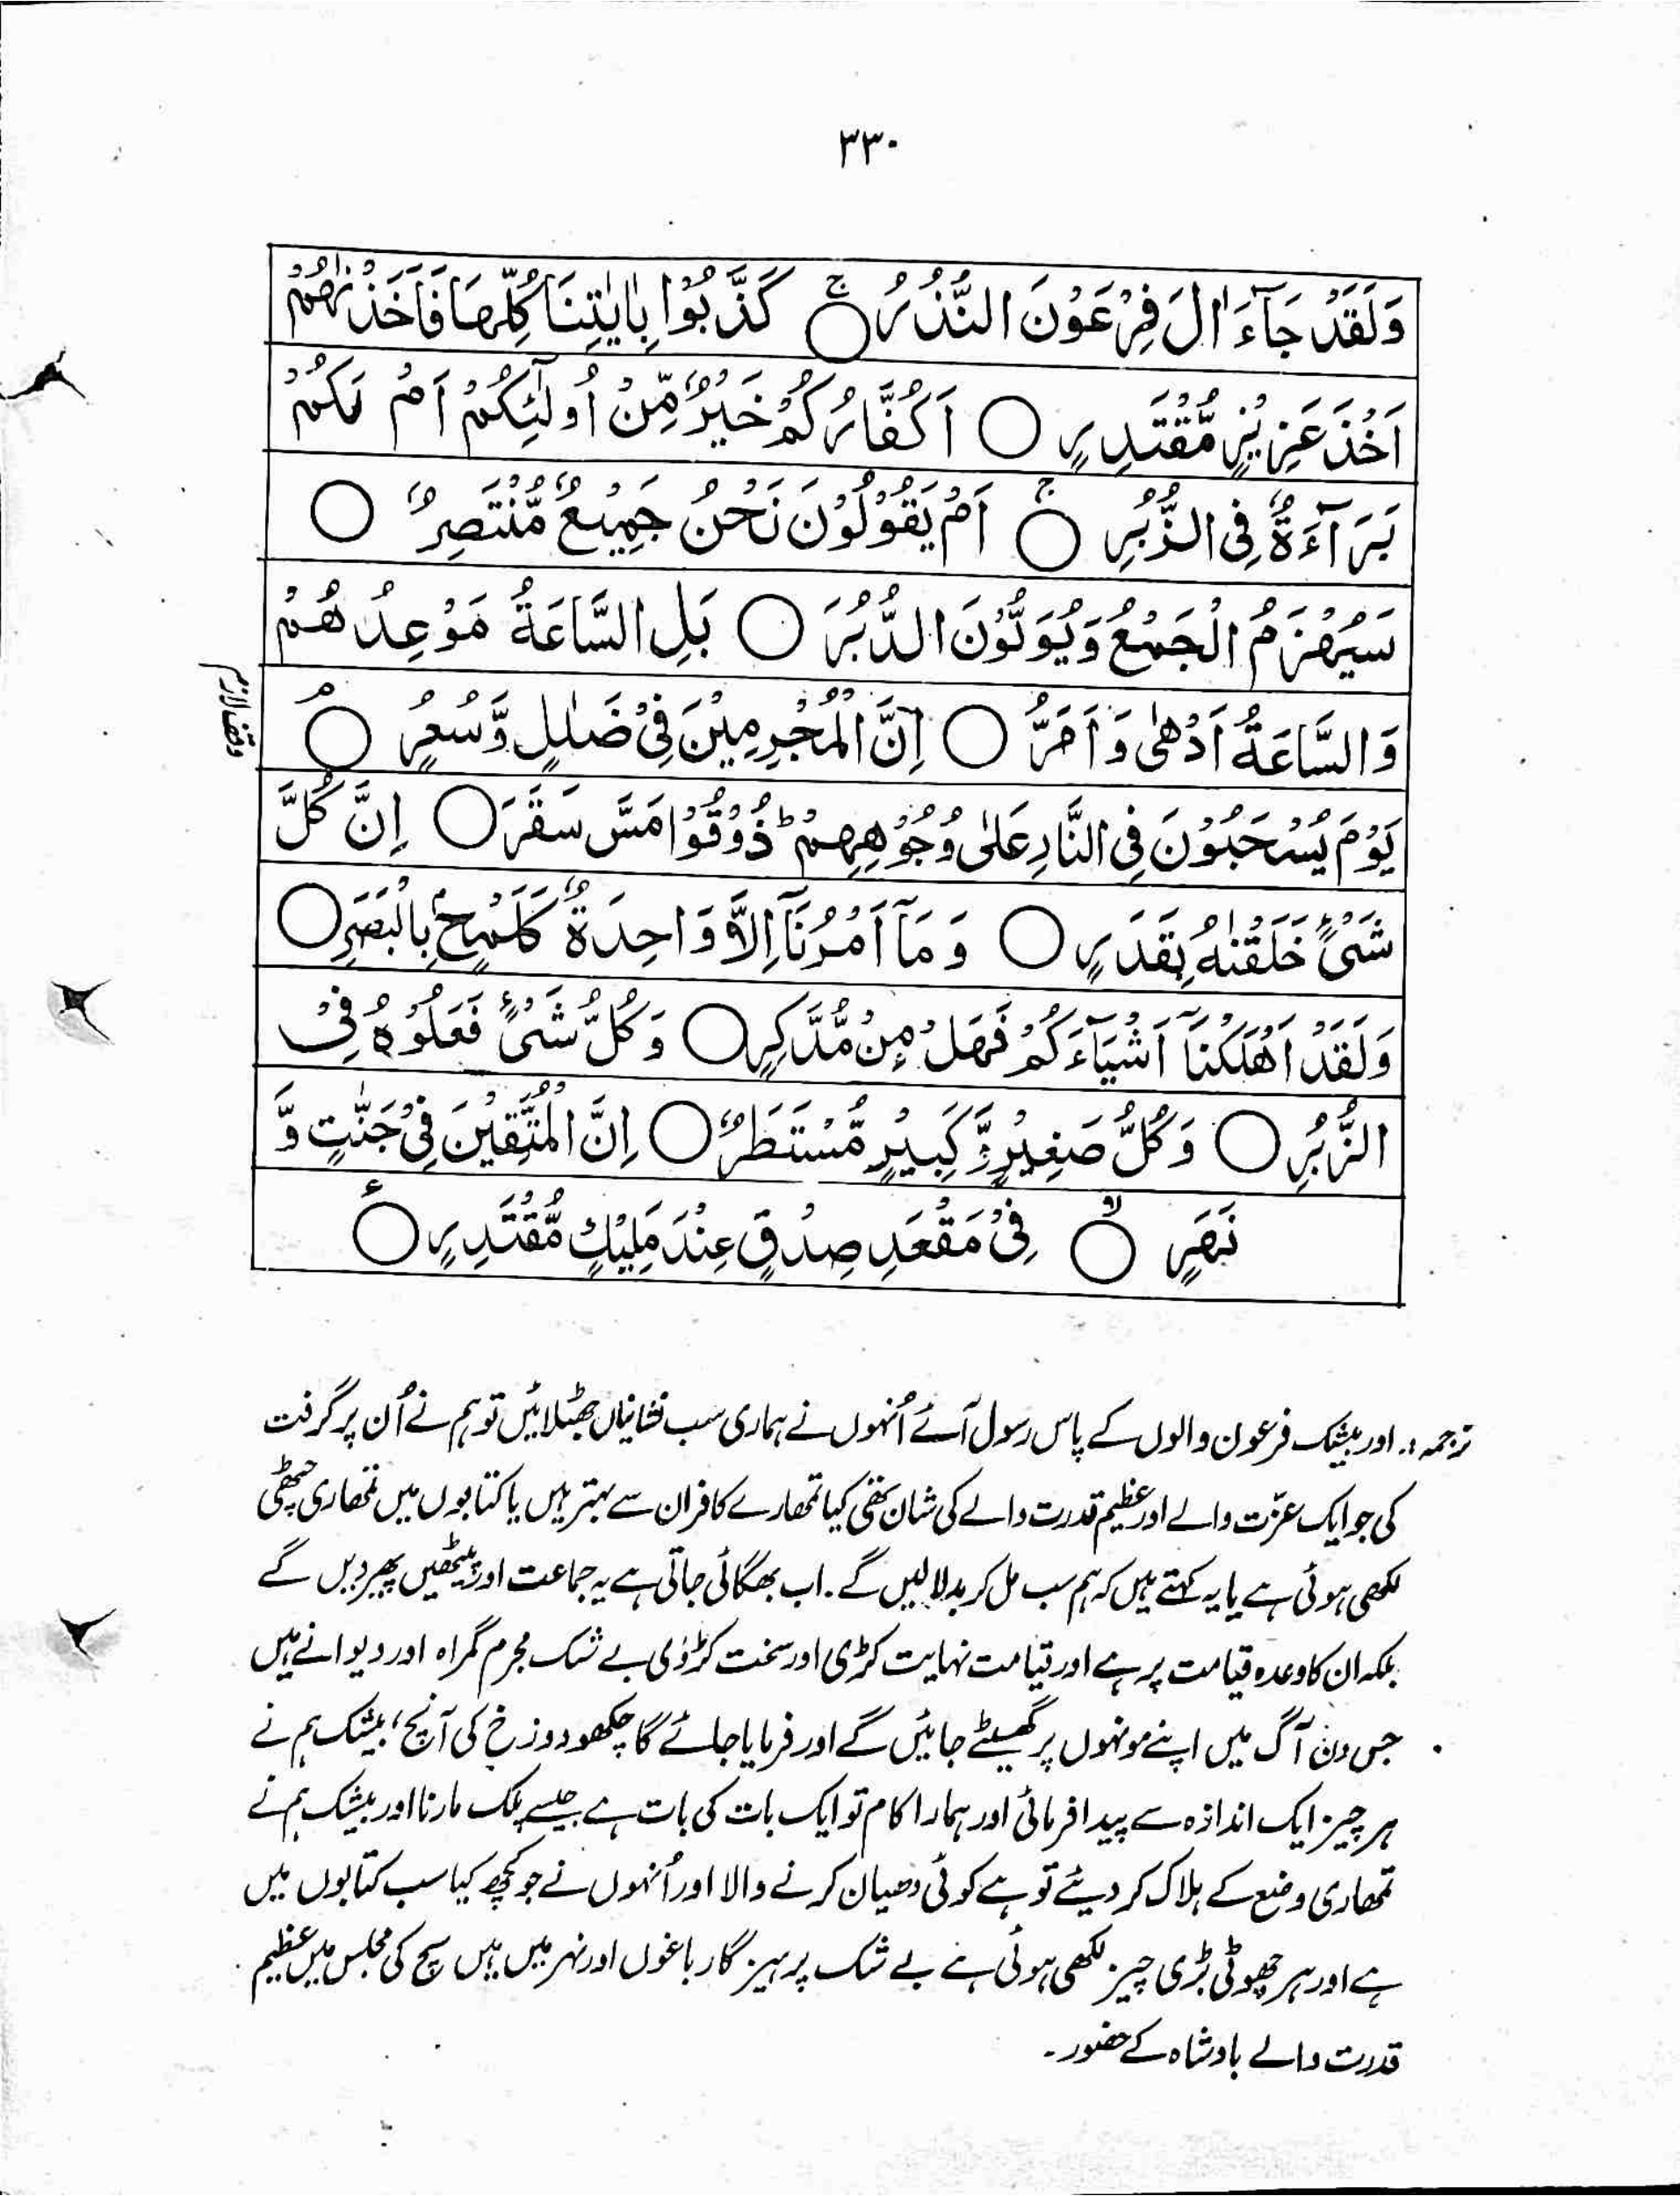 ۳۳۰
وَلَقَدْ جَآءَ اٰلَ فِرْعَوْنَ النُّذُرُ ۝ۚ كَذَّبُوْا بِاٰيٰتِنَا كُلِّهَا فَاَخَذْنٰهُمْ
اَخْذَ عَزِيْزٍ مُّقْتَدِرٍ ۝ اَكُفَّارُكُمْ خَيْرٌ مِّنْ اُولٰٓئِكُمْ اَمْ لَكُمْ
بَرَآءَةٌ فِى الزُّبُرِ ۝ۚ اَمْ يَقُوْلُوْنَ نَحْنُ جَمِيْعٌ مُّنْتَصِرٌ ۝
سَيُهْزَمُ الْجَمْعُ وَيُوَلُّوْنَ الدُّبُرَ ۝ بَلِ السَّاعَةُ مَوْعِدُهُمْ
وَالسَّاعَةُ اَدْهٰى وَاَمَرُّ ۝ اِنَّ الْمُجْرِمِيْنَ فِىْ ضَلٰلٍ وَّسُعُرٍ ۝ۘ
وقف لازم
يَوْمَ يُسْحَبُوْنَ فِى النَّارِ عَلٰى وُجُوْهِهِمْ ؕ ذُوْقُوْا مَسَّ سَقَرَ ۝ اِنَّ كُلَّ
شَىْءٍ خَلَقْنٰهُ بِقَدَرٍ ۝ وَمَآ اَمْرُنَآ اِلَّا وَاحِدَةٌ كَلَمْحٍۭ بِالْبَصَرِ ۝
وَلَقَدْ اَهْلَكْنَآ اَشْيَآءَكُمْ فَهَلْ مِنْ مُّدَّكِرٍ ۝ وَكُلُّ شَىْءٍ فَعَلُوْهُ فِىْ
الزُّبُرِ ۝ وَكُلُّ صَغِيْرٍ وَّكَبِيْرٍ مُّسْتَطَرٌ ۝ اِنَّ الْمُتَّقِيْنَ فِىْ جَنّٰتٍ وَّ
نَهَرٍ ۝ۙ فِىْ مَقْعَدِ صِدْقٍ عِنْدَ مَلِيْكٍ مُّقْتَدِرٍ ۝ع
ترجمہ :۔ اور بیشک فرعون والوں کے پاس رسول آئے اُنہوں نے ہماری سب نشانیاں جھٹلائیں تو ہم نے اُن پر گرفت
کی جو ایک عزّت والے اور عظیم قدرت والے کی شان تھی کیا تمھارے کافر ان سے بہتر ہیں یا کتابوں میں تمھاری چھٹی
لکھی ہوئی ہے یا یہ کہتے ہیں کہ ہم سب مل کر بدلا لیں گے۔ اب بھگائی جاتی ہے یہ جماعت اور پیٹھیں پھیر دیں گے
بلکہ ان کا وعدہ قیامت پر ہے اور قیامت نہایت کڑی اور سخت کڑوی بے شک مجرم گمراہ اور دیوانے ہیں
جس دن آگ میں اپنے مونہوں پر گھسیٹے جائیں گے اور فرمایا جائے گا چکھو دوزخ کی آنچ، بیشک ہم نے
ہر چیز ایک اندازہ سے پیدا فرمائی اور ہمارا کام تو ایک بات کی بات ہے جیسے پلک مارنا اور بیشک ہم نے
تمھاری وضع کے ہلاک کر دیئے تو ہے کوئی دھیان کرنے والا اور اُنہوں نے جو کچھ کیا سب کتابوں میں
ہے اور ہر چھوٹی بڑی چیز لکھی ہوئی ہے بے شک پرہیز گار باغوں اور نہر میں ہیں سچ کی مجلس میں عظیم
قدرت والے بادشاہ کے حضور۔